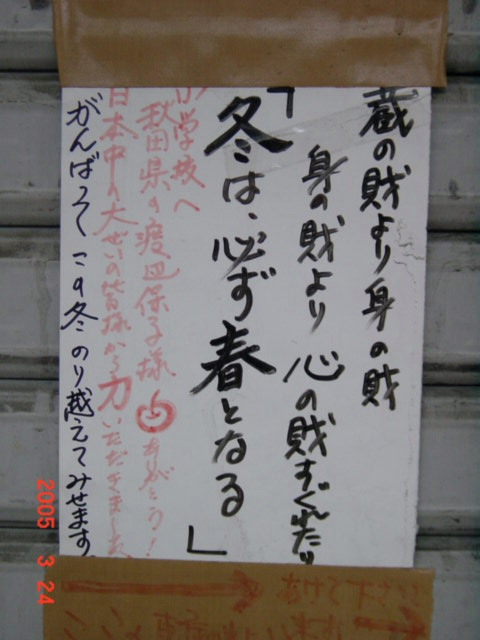 蔵の財より身の財
身の財より心の財すぐれたり
「冬は、必ず春となる」
小学校へ
秋田県の渡辺保子様ありがとう!
日本中の大ぜいの皆様から力いただきました、
がんばってこの冬のり越えてみせます
2005 3 24